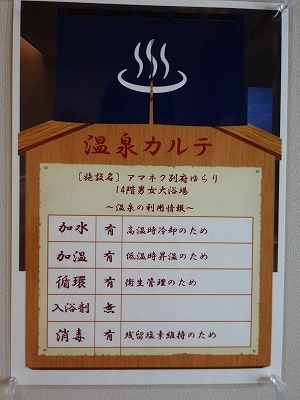 温泉カルテ
［施設名］アマネク別府ゆらり
14階男女大浴場
～温泉の利用情報～
加水 有 高温時冷却のため
加温 有 低温時昇温のため
循環 有 衛生管理のため
入浴剤 無
消毒 有 残留塩素維持のため